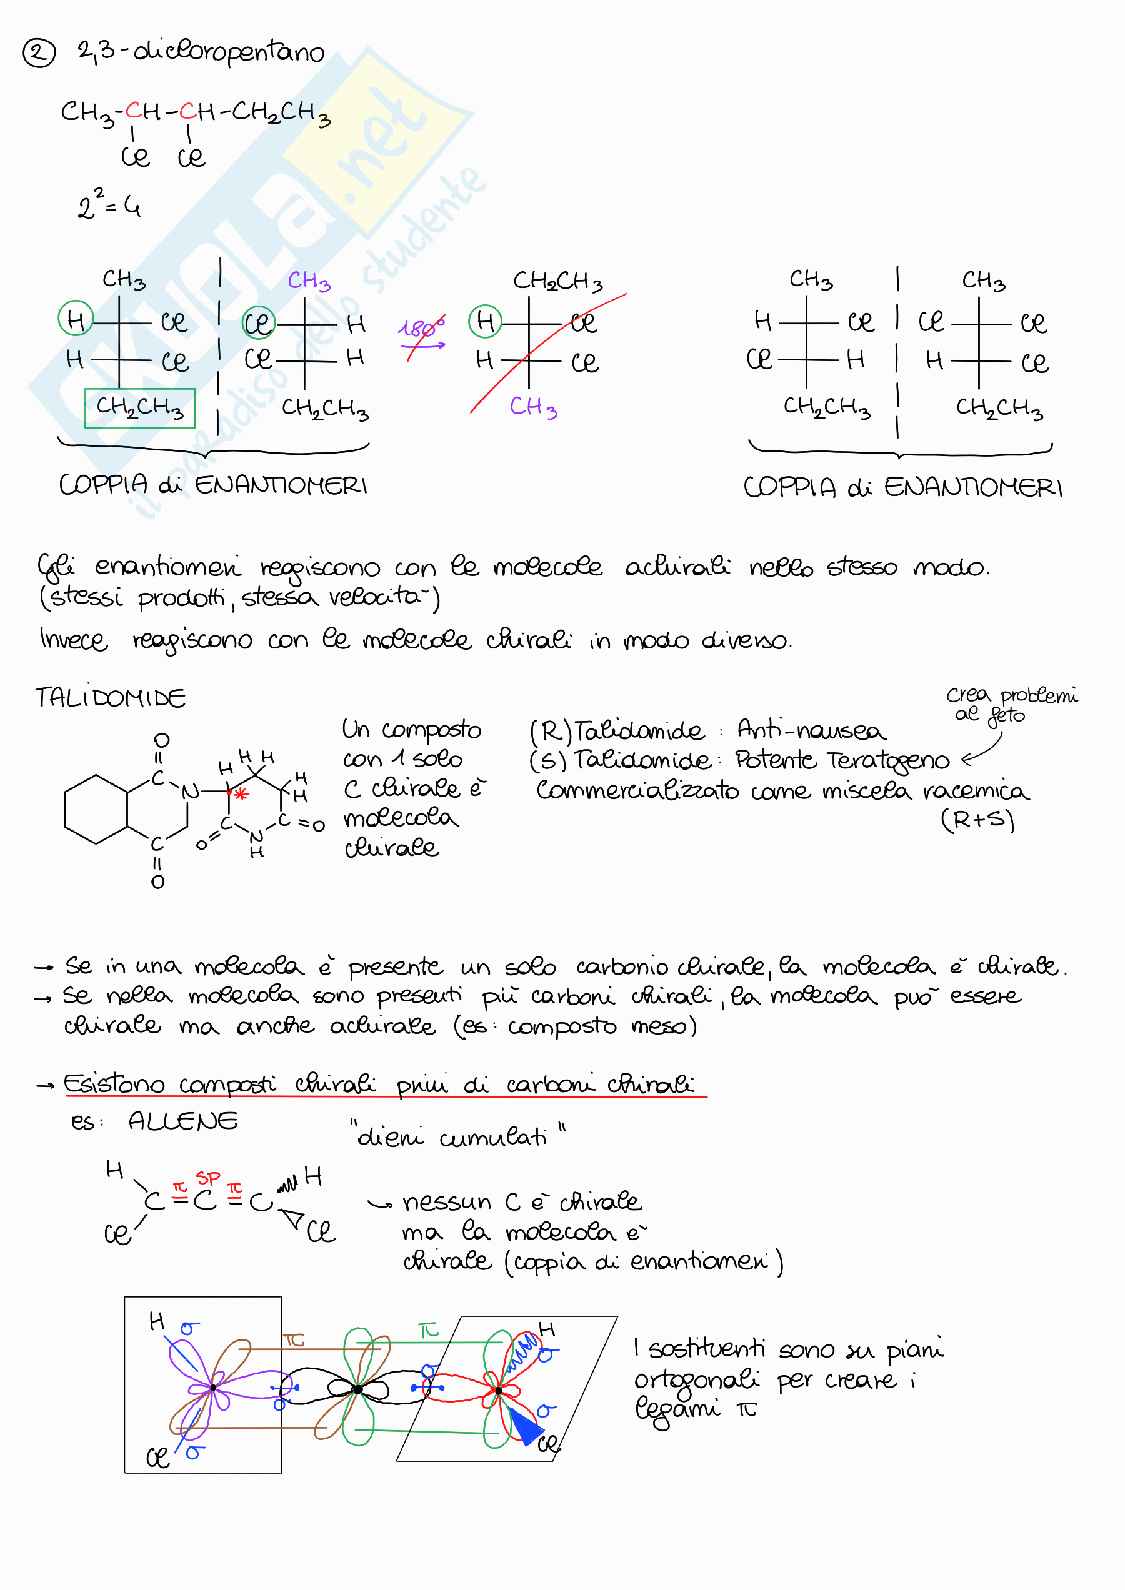 ② 2,3-dicloropentano
CH3-CH-CH-CH2CH3
Cl Cl
2²=4
CH3 CH3 CH2CH3 CH3 CH3
H Cl Cl H 180° H Cl H Cl Cl Cl
H Cl Cl H H Cl Cl H H Cl
CH2CH3 CH2CH3 CH3 CH2CH3 CH2CH3
COPPIA di ENANTIOMERI COPPIA di ENANTIOMERI
Gli enantiomeri reagiscono con le molecole achirali nello stesso modo.
(stessi prodotti, stessa velocità)
Invece reagiscono con le molecole chirali in modo diverso.
TALIDOMIDE
crea problemi
al feto
Un composto
con 1 solo
C chirale è
molecola
chirale
(R)Talidomide: Anti-nausea
(S)Talidomide: Potente Teratogeno
Commercializzato come miscela racemica
(R+S)
O
C
N
H H H
H
H
*
C C=O
O
N
H
C
O
→ Se in una molecola è presente un solo carbonio chirale, la molecola è chirale.
→ Se nella molecola sono presenti più carboni chirali, la molecola può essere
chirale ma anche achirale (es: composto meso)
→ Esistono composti chirali privi di carboni chirali
es: ALLENE "dieni cumulati"
H π SP π H
C=C=C
Cl Cl
nessun C è chirale
ma la molecola è
chirale (coppia di enantiomeri)
H σ π π H σ
σ σ
Cl σ σ Cl
I sostituenti sono su piani
ortogonali per creare i
legami π
skuola.net
il paradiso dello studente